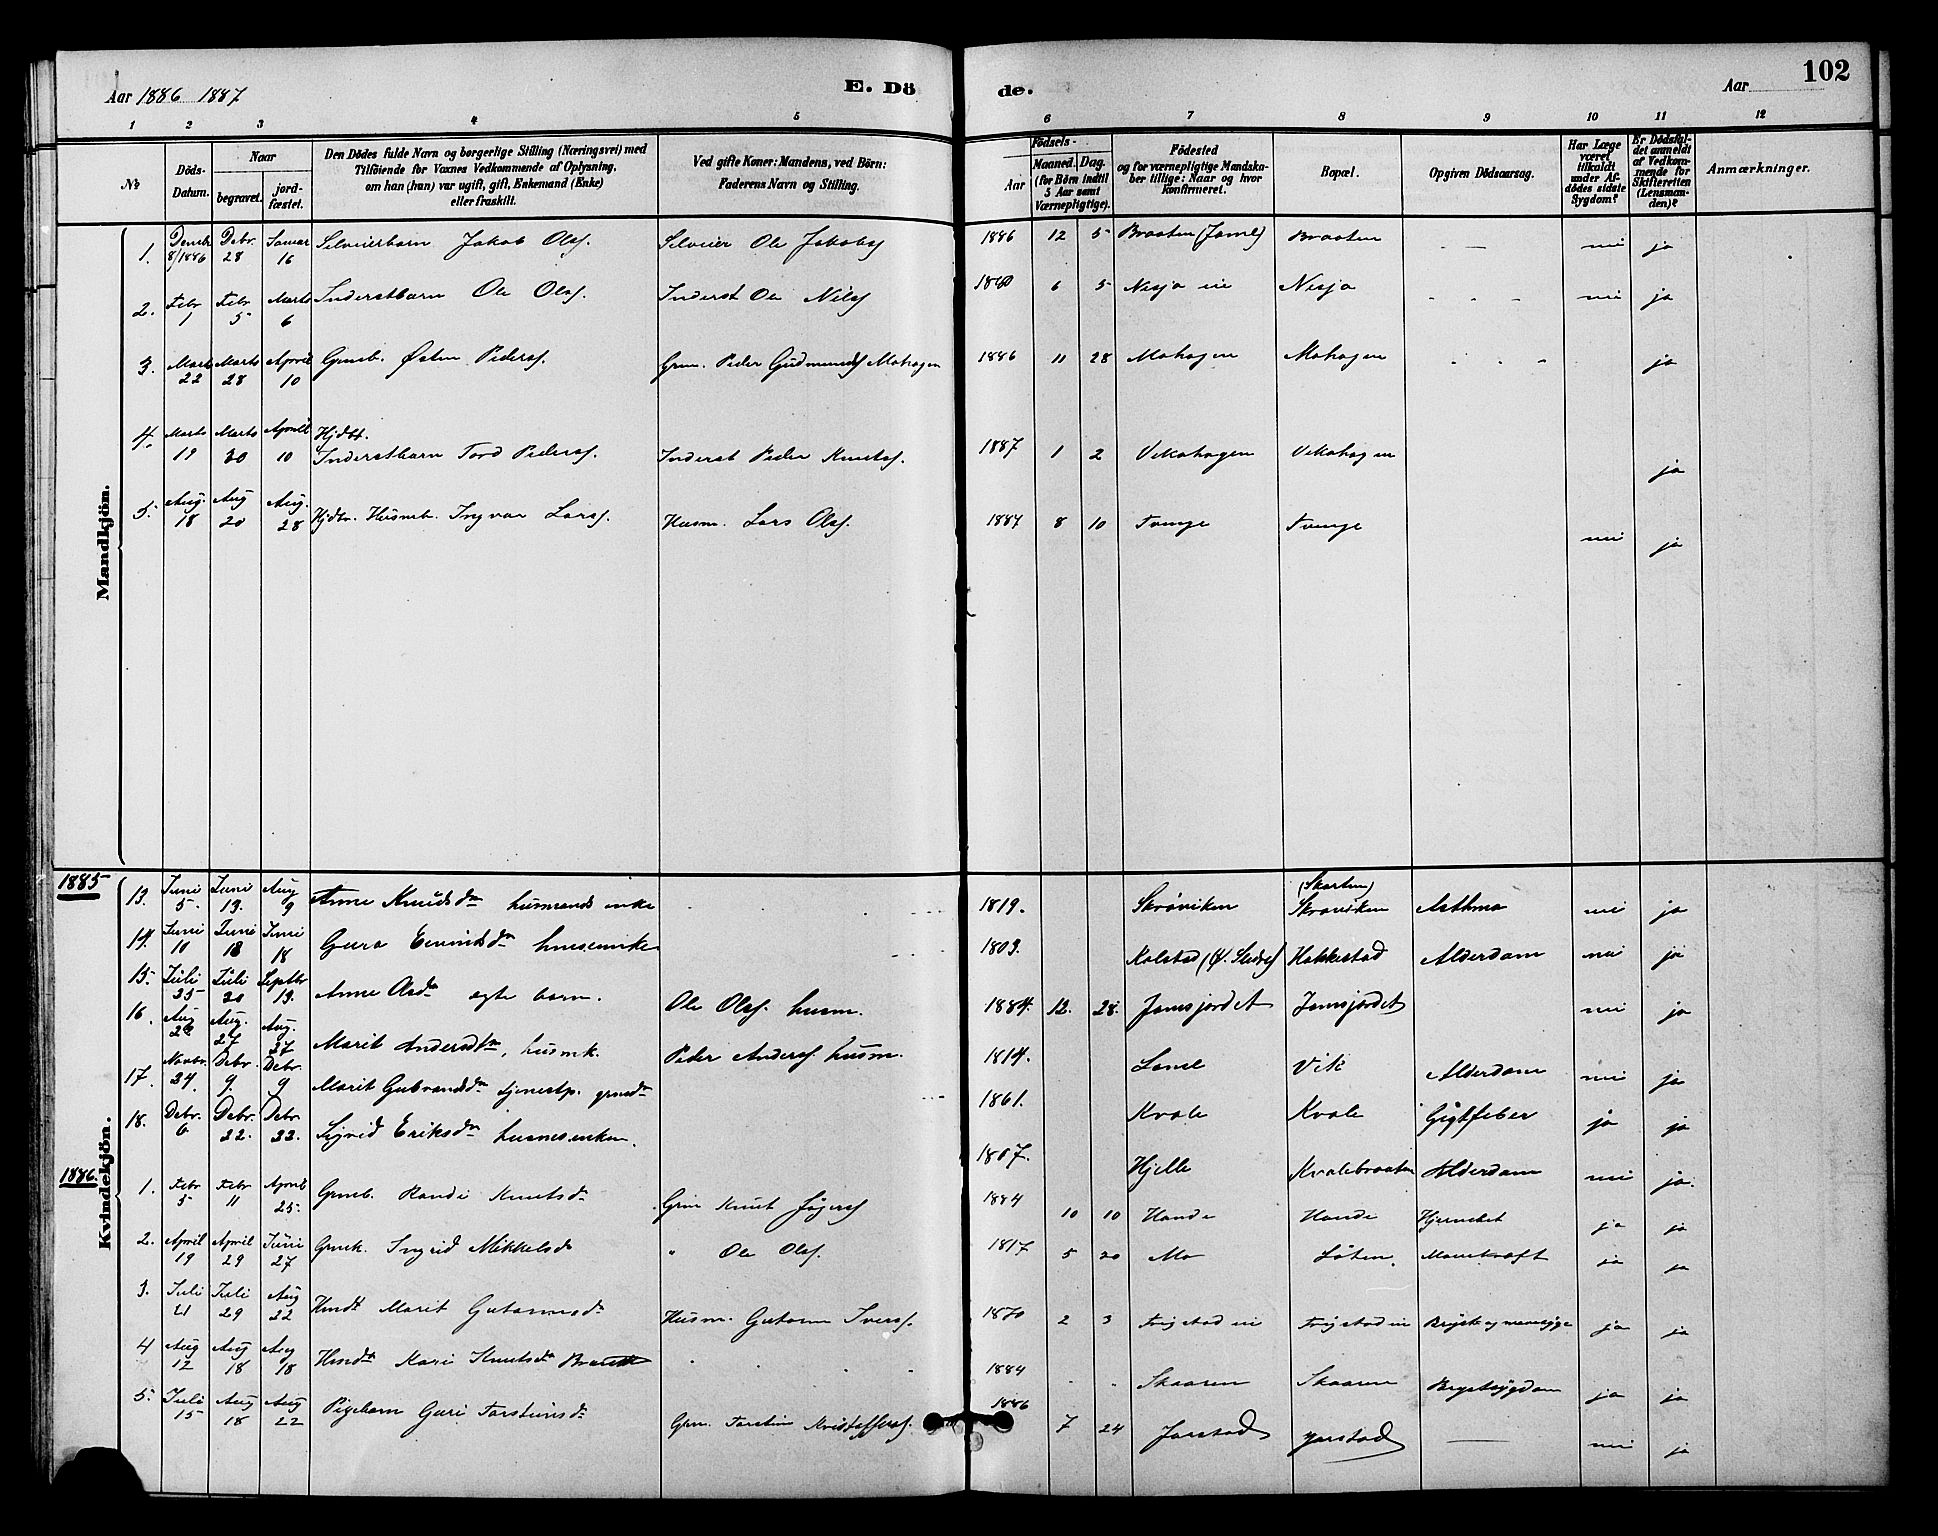 Aar 1886 1887
E. Dö
de.
Aar
102
1 2 3 4 5 6 7 8 9 10 11 12
No
Döds-Datum.
Naar
begravet.
jord-fæstet.
Den Dödes fulde Navn og borgerlige Stilling (Næringsvei) med
Tilföiende for Voxnes Vedkommende af Oplysning,
om han (hun) var ugift, gift, Enkemand (Enke)
eller fraskilt.
Ved gifte Koner: Mandens, ved Börn:
Faderens Navn og Stilling.
Födsels-
Aar
Maaned. Dag.
(for Börn indtil
5 Aar samt
Værnepligtige).
Födested
og for værnepligtige Mandska-
ber tillige: Naar og hvor
konfirmeret.
Bopæl.
Opgiven Dödsaarsag.
Har Læge
været
tilkaldt
under Af-
dödes sidste
Sygdom?
Er Dödsfal-
det anmeldt
af Vedkom-
mende for
Skifteretten
(Lensman-
den)?
Anmærkninger.
Mandkjön.
1. Decbr 8/1886 Debr. 28 Januar 16 Selveierbarn Jakob Olss. Selveier Ole Jakobs 1886 12 5 Braaten Braaten nei ja
2. Febr 1 Febr 5 Marts 6 Inderstbarn Ole Olss. Inderst Ole Nilss 6 5 Nesja eie Nesja nei ja
3. Marts 22 Marts 28 April 10 Grmb. Østen Peders. Grm. Peder Gudmunds Mohagen 1886 11 28 Mohagen Mohagen ja
4. Marts 19 Marts 30 April 10 Hjdbt. Inderstbarn Tord Peders. Inderst Peder Knuts. 1887 1 2 Vikahagen Vikahagen ja
5. Aug. 18 Aug 20 Aug. 28 Hjdbr. Husmb. Ingvar Larss. Husm. Lars Olss. 1887 8 10 Tvenge Tvenge nei ja
Kvindekjön.
1885
13. Juni 5. Juni 13. Aug 9 Anne Knudsdr husmands enke 1819. Skrøviken (Skarten) Skrøviken Asthma nei ja
14. Juni 10 Juni 18 Juni 18 Guro husmenke 1803. Kolstad Hakkestad Alderdom nei ja
15. Juli 25 Juli 20 Septbr 13. Anne Olsdr ægte barn. Ole Olss. husm. 1884. 12. 28. Jomsjordet Jomsjordet nei ja
16. Aug Aug. 27 Aug. 27 Marit Andersdtr, husmk. Peder Anderss. husm. 1814. Lome Vik Alderdom nei ja
17. Novbr. 24. Debr. 9. Debr. 9 Marit Gubrandsdr tjenestp. 1861. Kvale Kvale Gigtfeber ja ja
18. Debr. 6 Debr. 22. Debr. 22. Sigrid Eriksdr husmesenken. 1807. Hjelle Kvalebraaten Alderdom nei ja.
1886.
1. Febr 5 Febr 11 April 25. Grmb. Randi Knutsdr Grm Knut 1884 10 10 Hande Hande ja ja
2. April 19 April 29 Juni 27 Grmk. Ingrid Mikkelsdr " Ole Olss. 1817 5 20 Mo Løken. Mavekræft ja ja
3. Juli 21 Juli 29 Aug 22 Hmdt Marit Gutormsdr Husm. Gutorm Ivers. 1870 2 3 ja ja
4 Aug 12 Aug 18 Aug 18 Hmdr Kari Knutsdr 1884 Skaaren Skaaren Brystsygdom ja ja
5. Juli 15 Aug 18 Aug 22 Pigebarn Guri Torsteinsdr Grm. Torstein Kristoffers. 1886 7 24 Jarstad Jarstad nei ja